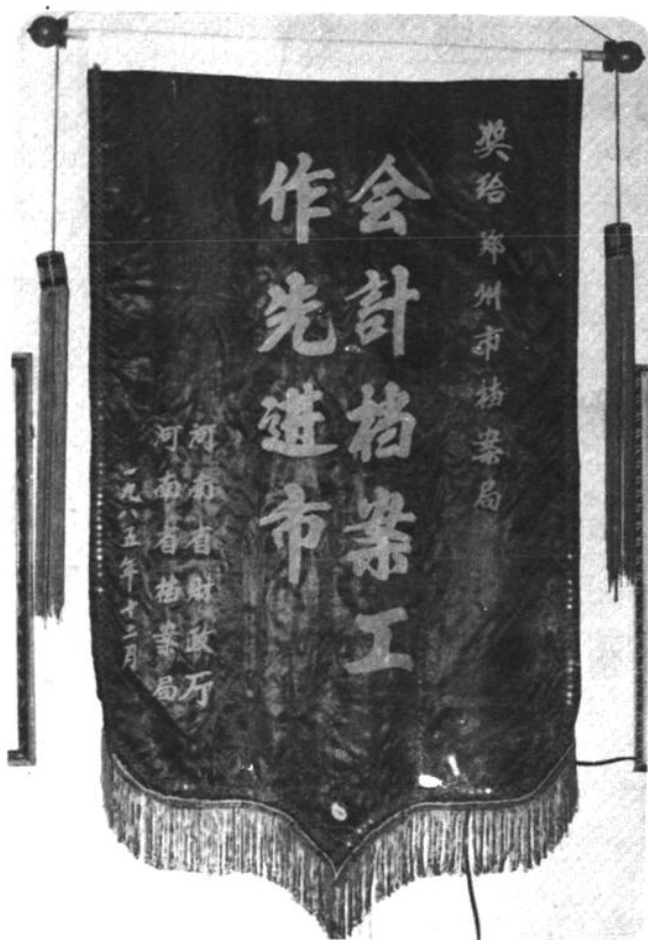 奖给郑州市档案局
会計档案工
作先进市
河南省财政厅
河南省档案局
一九八五年十二月